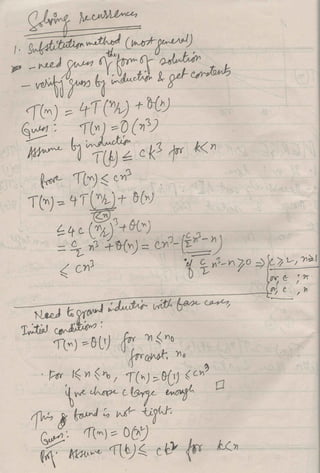 Solving recurrences
1. Substitution method (most general)
- need guess of the form of solution
- verify guess by induction & get constants
T(n) = 4T(n/2) + θ(n)
Guess: T(n) = O(n³)
Assume by induction
T(k) ≤ ck³ for k<n
Prove T(n) ≤ cn³
T(n) = 4T(n/2) + θ(n)
≤ 4c (n/2)³ + θ(n)
= c/2 n³ + θ(n) = cn³ - (c/2 n³ - n)
≤ cn³
if c/2 n³ - n ≥ 0 ⇒ c ≥ 2, n≥1
Need to ground induction with base cases
Initial conditions:
T(n) = θ(1) for n ≤ n₀
for const. n₀
· For 1≤ n ≤ n₀, T(n) = θ(1) ≤ cn³
if we choose c large enough □
This bound is not tight.
Guess: T(n) = O(n²)
Prf. Assume T(k) ≤ ck² for k<n